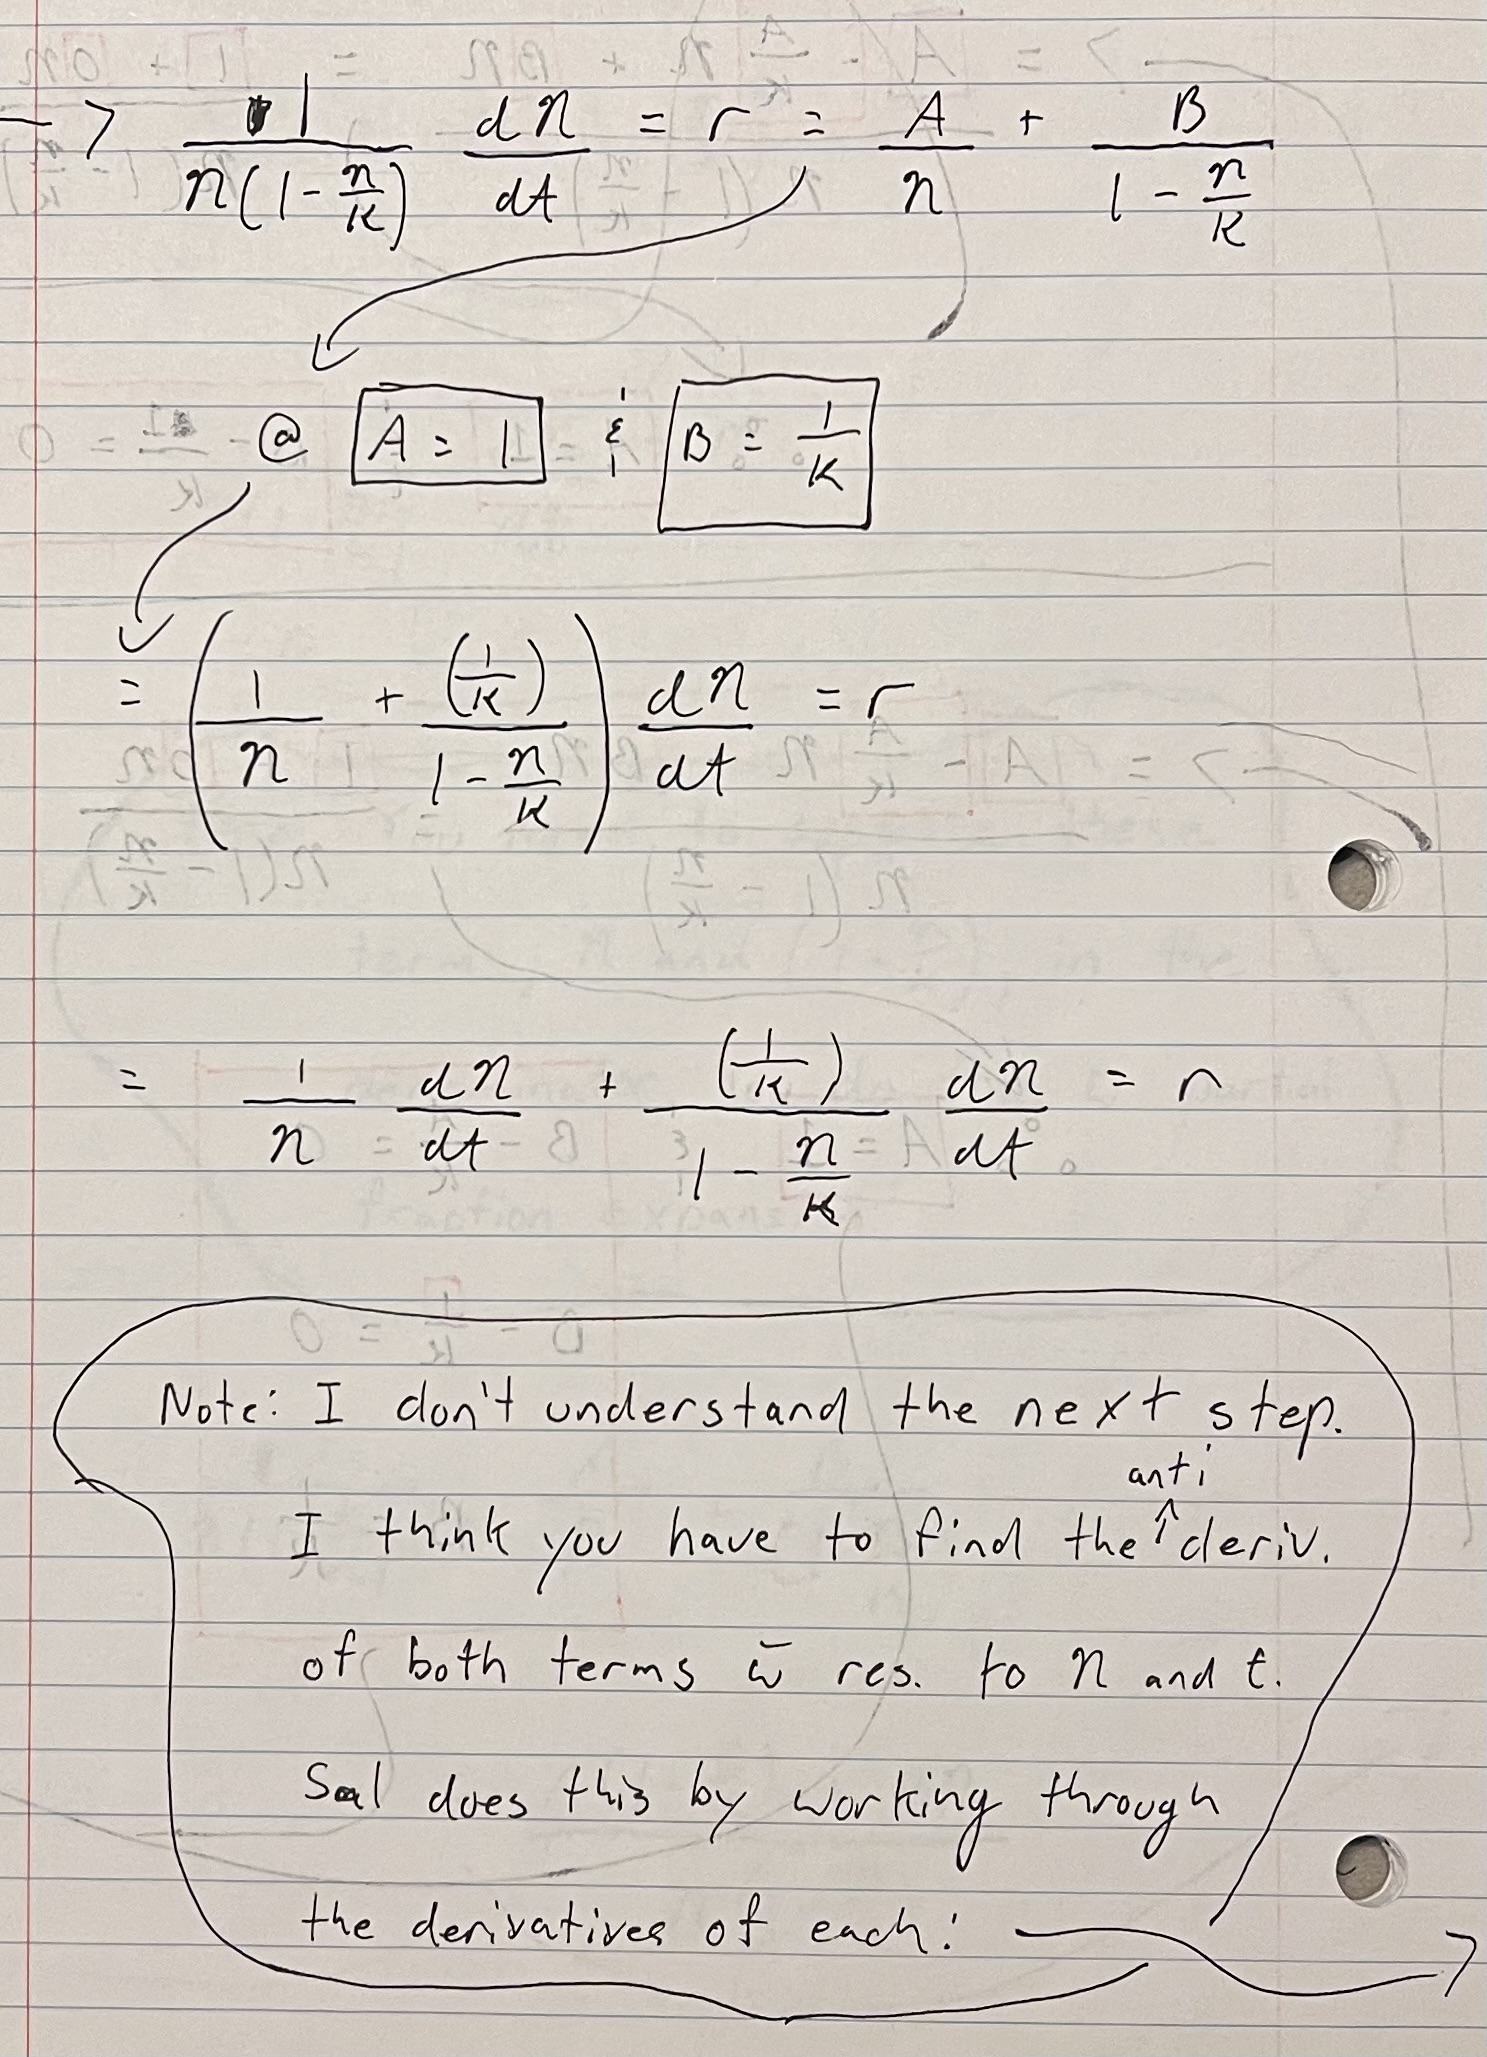 —> 1/(n(1 - n/K)) dn/dt = r = A/n + B/(1 - n/K)
@ A = 1 & B = 1/K
= (1/n + (1/K)/(1 - n/K)) dn/dt = r
= 1/n dn/dt + (1/K)/(1 - n/K) dn/dt = r
Note: I don't understand the next step.
anti
I think you have to find the ^ deriv.
of both terms w̄ res. to n and t.
Sal does this by working through
the derivatives of each: →